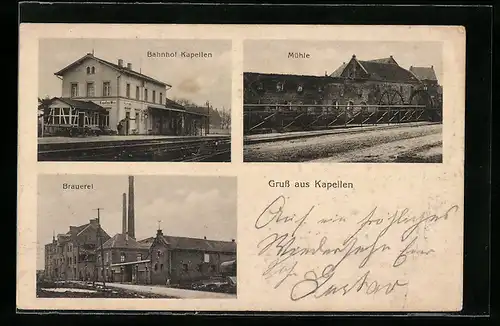 Bahnhof Kapellen
Mühle
Brauerei
Gruß aus Kapellen
Auf ein fröhliches
Wiedersehn
Gustav